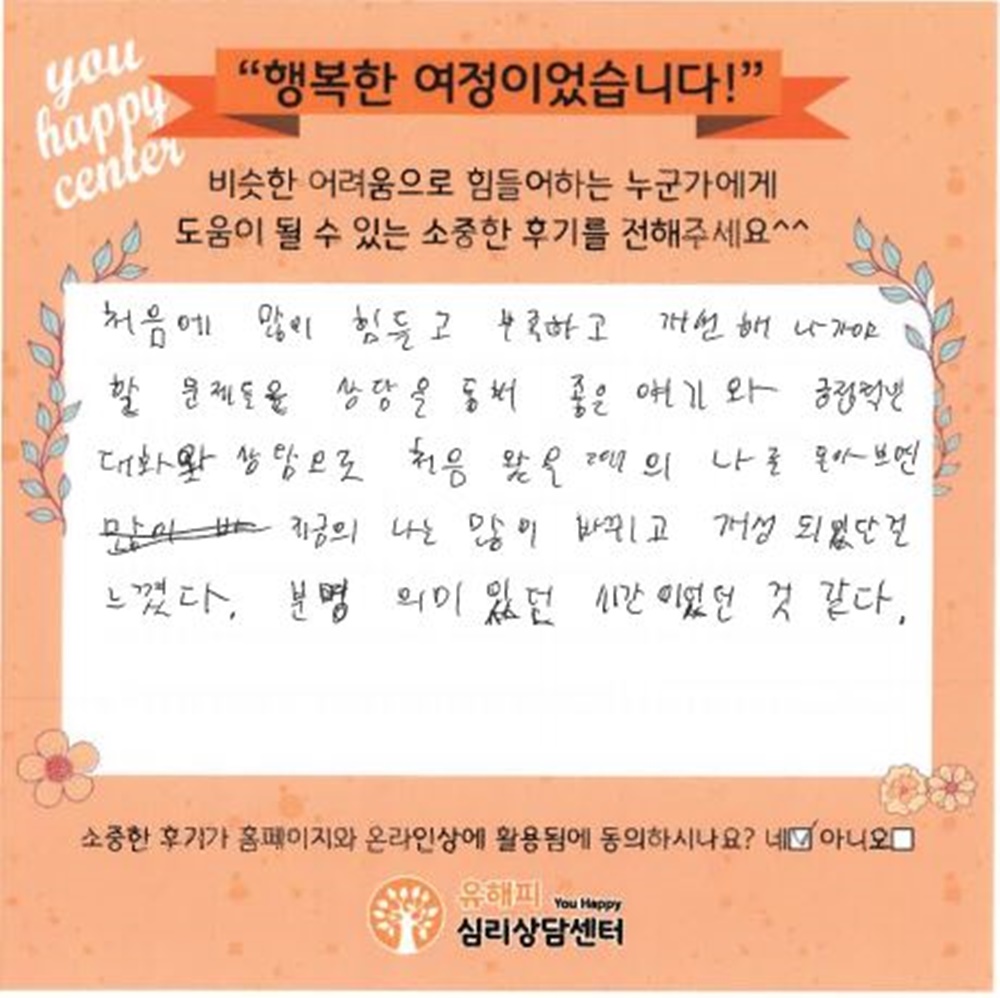 you
happy
center
“행복한 여정이었습니다!”
비슷한 어려움으로 힘들어하는 누군가에게
도움이 될 수 있는 소중한 후기를 전해주세요^^
처음에 많이 힘들고 부족하고 개선해 나가야
할 문제들을 상담을 통해 좋은 얘기와 긍정적인
대화와 상담으로 처음 왔을 때의 나를 돌아보면
많이 바 지금의 나는 많이 바뀌고 개선 되었단걸
느꼈다. 분명 의미 있던 시간이었던 것 같다.
소중한 후기가 홈페이지와 온라인상에 활용됨에 동의하시나요? 네☑ 아니오☐
유해피 You Happy
심리상담센터